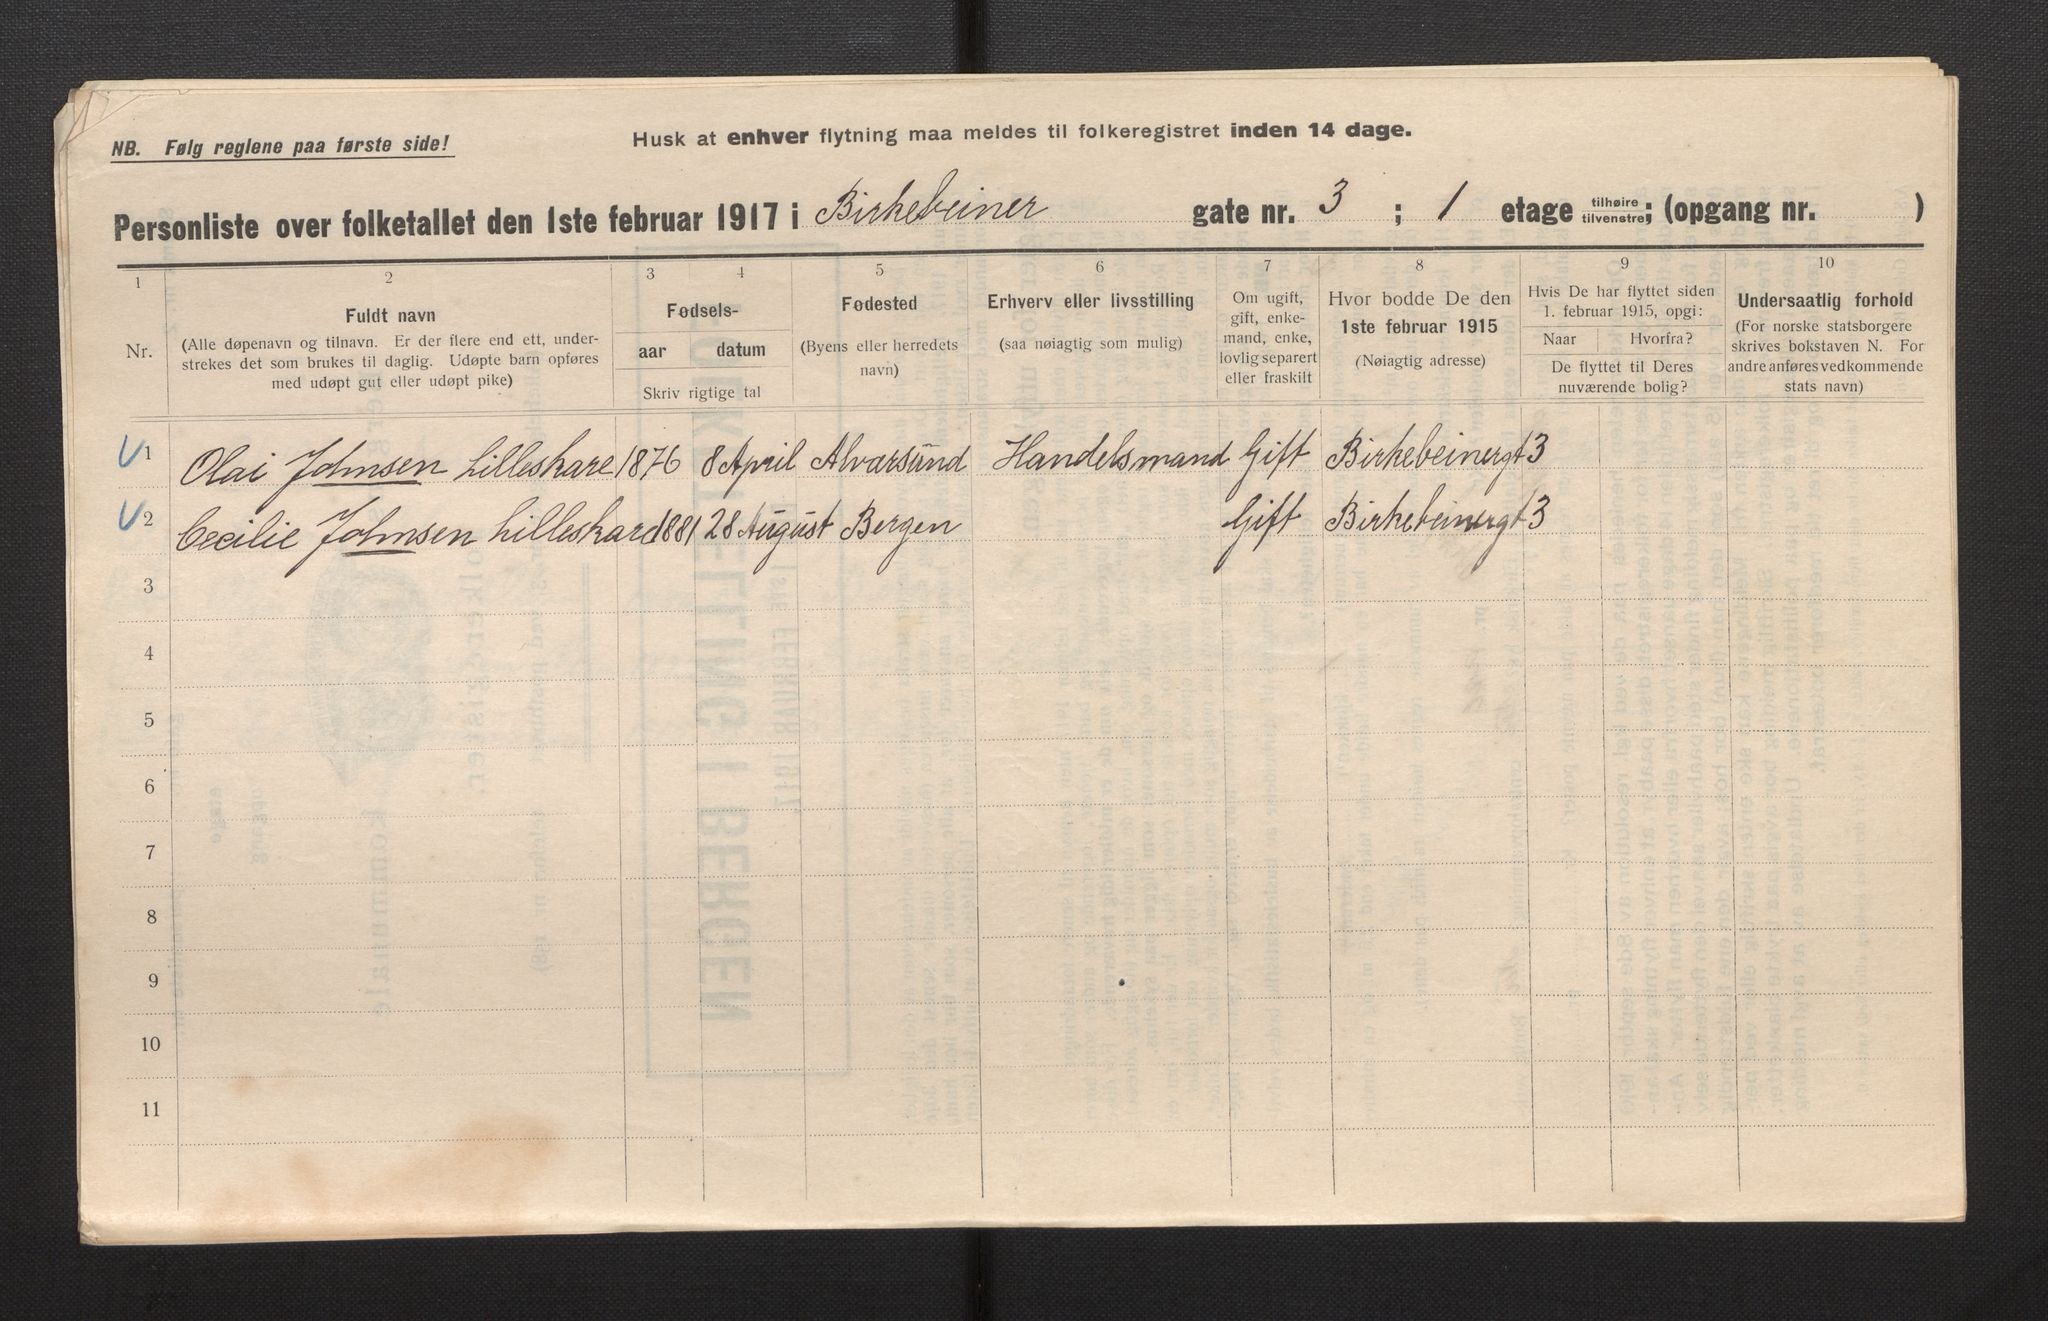 NB. Følg reglene paa første side!
Husk at enhver flytning maa meldes til folkeregistret inden 14 dage.
Personliste over folketallet den 1ste februar 1917 i Birkebeiner gate nr. 3 ; 1 etage tilhøire tilvenstre; (opgang nr. )
1 2 3 4 5 6 7 8 9 10
Nr.
Fuldt navn
(Alle døpenavn og tilnavn. Er der flere end ett, under-
strekes det som brukes til daglig. Udøpte barn opføres
med udøpt gut eller udøpt pike)
Fødsels-
aar datum
Skriv rigtige tal
Fødested
(Byens eller herredets
navn)
Erhverv eller livsstilling
(saa nøiagtig som mulig)
Om ugift,
gift, enke-
mand, enke,
lovlig separert
eller fraskilt
Hvor bodde De den
1ste februar 1915
(Nøiagtig adresse)
Hvis De har flyttet siden
1. februar 1915, opgi:
Naar Hvorfra?
De flyttet til Deres
nuværende bolig?
Undersaatlig forhold
(For norske statsborgere
skrives bokstaven N. For
andre anføres vedkommende
stats navn)
1 Olai Johnsen Lilleskare 1876 8 April Alversund Handelsmand Gift Birkebeinergt 3
2 Cecilie Johnsen Lilleskare 1881 28 August Bergen Gift Birkebeinergt 3
3
4
5
6
7
8
9
10
11